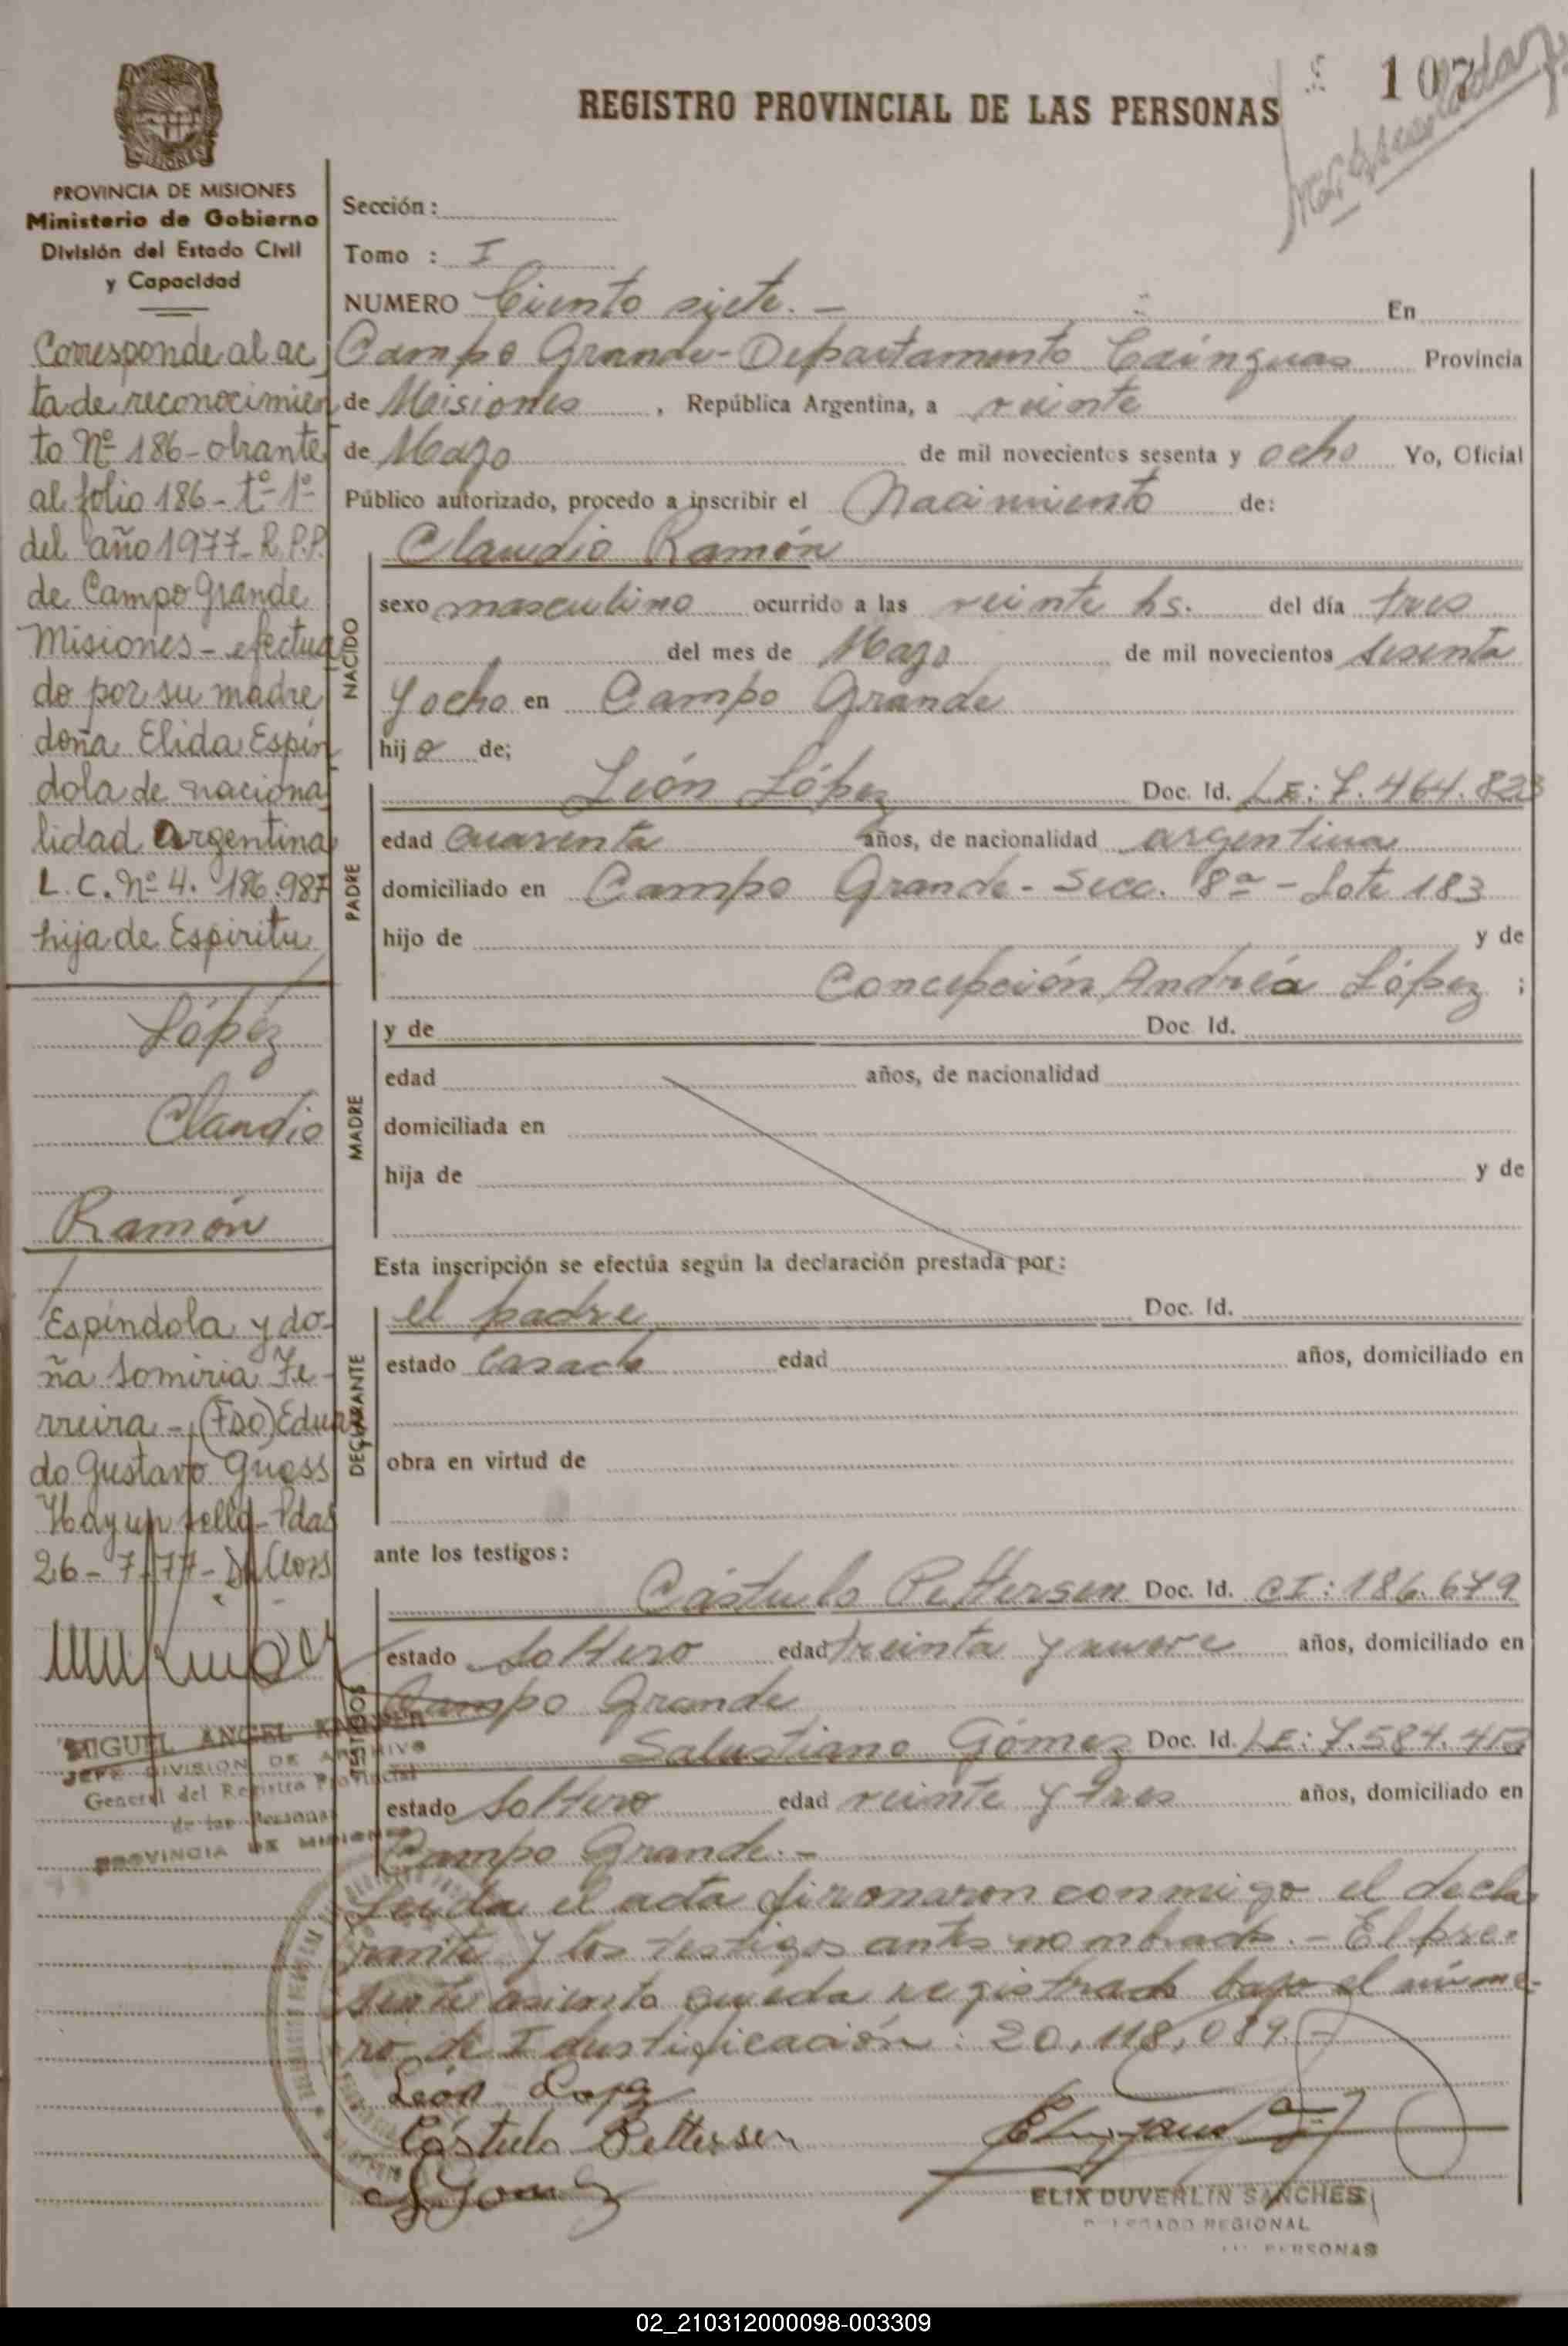 107
REGISTRO PROVINCIAL DE LAS PERSONAS
PROVINCIA DE MISIONES
Ministerio de Gobierno
División del Estado Civil
y Capacidad
Corresponde al ac
ta de reconocimien
to Nº 186 - obrante
al folio 186 - tº - 1º
del año 1977 - R.P.P.
de Campo Grande
Misiones - efectua
do por su madre
doña Elida Espín
dola de naciona
lidad Argentina
L.C. Nº 4.186.987
hija de Espiritu
López
Claudio
Ramón
Espíndola y do-
ña Somiria Fe-
rreira - (FDO) Eduar
do Gustavo Gross
Hay un sello - Pdas
26-7-77-
MIGUEL ANGEL
JEFE DIVISION DE ARCHIVO
General del Registro Provincial
de las Personas
PROVINCIA DE MISIONES
Sección:
Tomo : I
NUMERO Ciento siete. - En
Campo Grande - Departamento Cainguas Provincia
de Misiones, República Argentina, a veinte
de Mayo de mil novecientos sesenta y ocho Yo, Oficial
Público autorizado, procedo a inscribir el Nacimiento de:
Claudio Ramón
NACIDO
sexo masculino ocurrido a las veinte hs. del día tres
del mes de Mayo de mil novecientos sesenta
y ocho en Campo Grande
hij o de;
PADRE
León López Doc. Id. LE: 7.464.823
edad cuarenta años, de nacionalidad argentina
domiciliado en Campo Grande - Secc. 8ª - Lote 183
hijo de y de
Concepción Andréa López ;
MADRE
y de Doc. Id.
edad años, de nacionalidad
domiciliada en
hija de y de
Esta inscripción se efectúa según la declaración prestada por:
DECLARANTE
el padre Doc. Id.
estado casado edad años, domiciliado en
obra en virtud de
ante los testigos:
TESTIGOS
Cástulo Pettersen Doc. Id. CI: 186.679
estado soltero edad treinta y nueve años, domiciliado en
Campo Grande
Salustiano Gómez Doc. Id. LE: 7.584.
estado soltero edad veinte y tres años, domiciliado en
Campo Grande. -
Leida el acta firmaron conmigo el decla
rante y los testigos antes nombrado. - El pre-
sente asiento queda registrado bajo el núme-
ro de Identificación: 20.118.089. -
León Lopez
Cástulo Pettersen
SGomez
ELIX DUVERLIN SANCHES
DELEGADO REGIONAL
PERSONAS
02_210312000098-003309